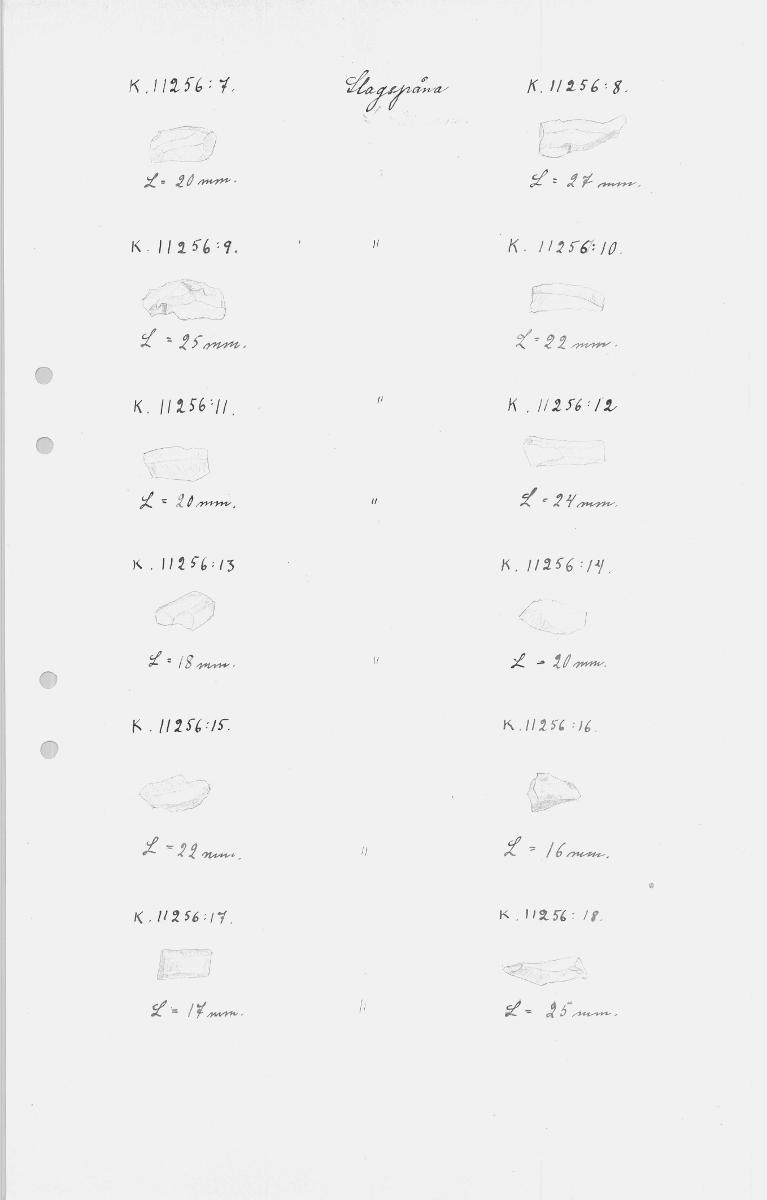 K. 11256:7. Slagspåna K. 11256:8.
L = 20 mm. L = 27 mm.
K. 11256:9. " K. 11256:10.
L = 25 mm. L = 22 mm.
K. 11256:11. " K. 11256:12
L = 20 mm. " L = 24 mm.
K. 11256:13 K. 11256:14.
L = 18 mm. " L = 20 mm.
K. 11256:15. K. 11256:16.
L = 22 mm. " L = 16 mm.
K. 11256:17. K. 11256:18.
L = 17 mm. " L = 25 mm.